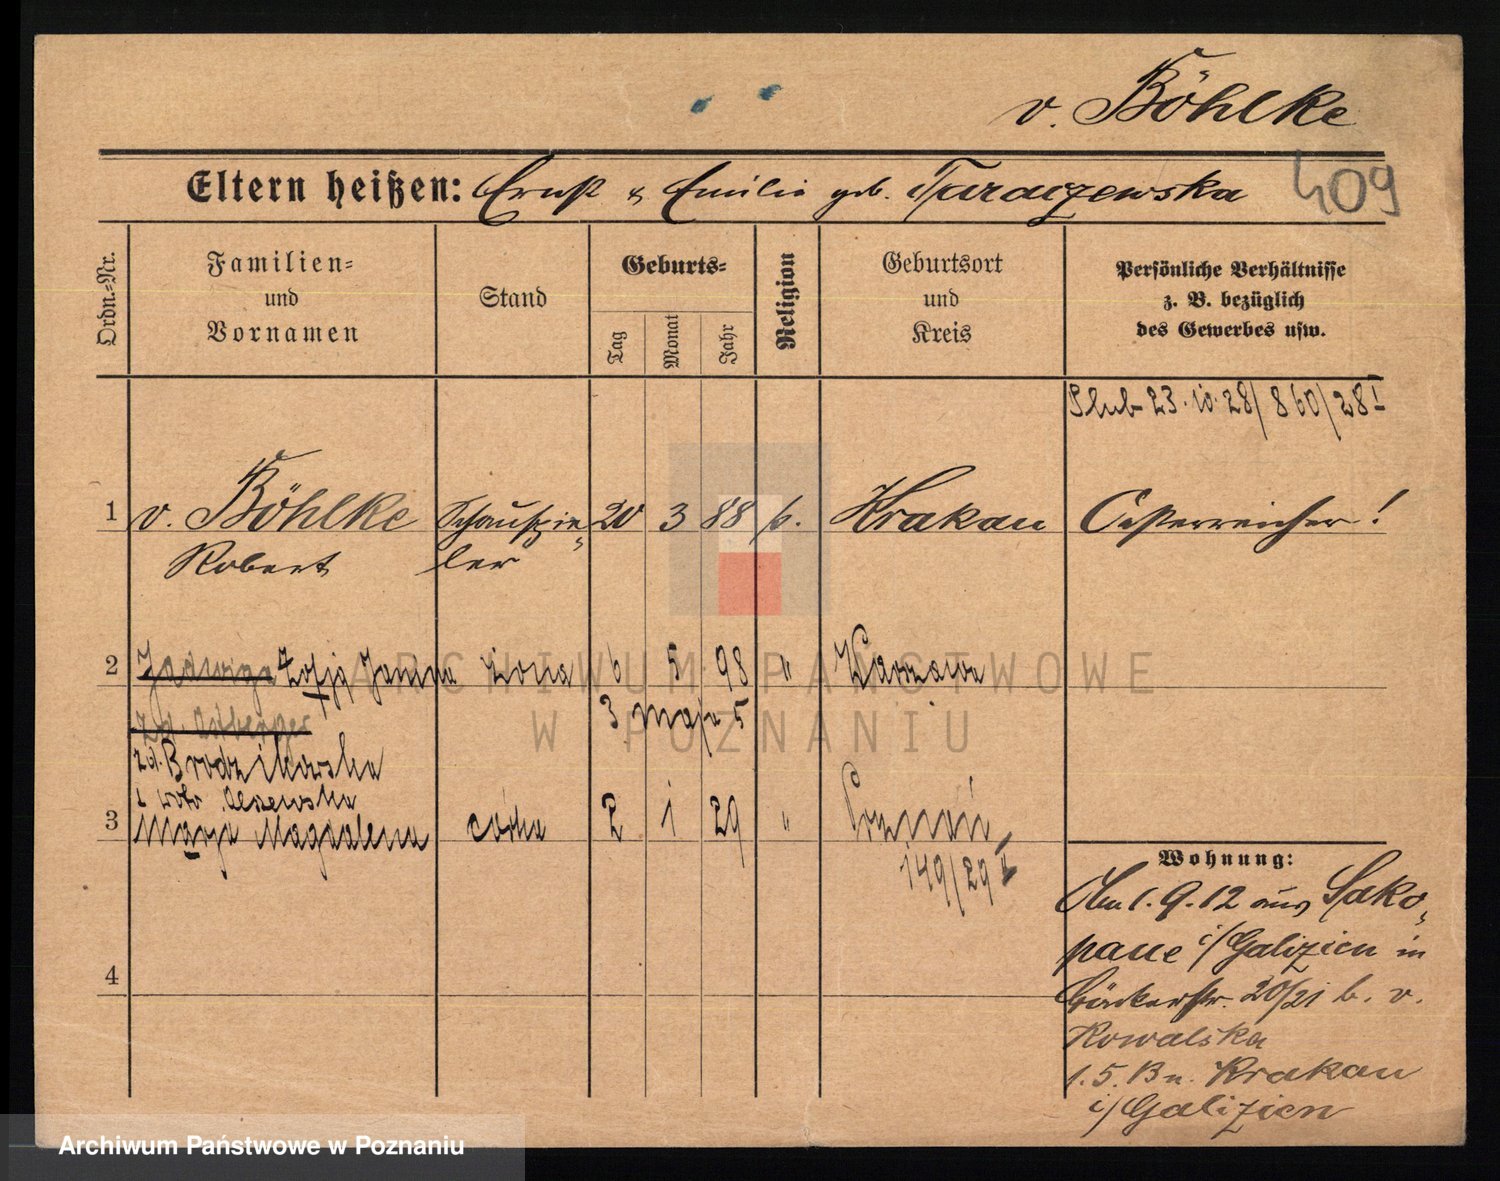 v. Böhlke
Eltern heißen: Ernst & Emilie geb. Taraczewska
409
Ordn.-Nr.
Familien-
und
Vornamen
Stand
Geburts-
Tag
Monat
Jahr
Religion
Geburtsort
und
Kreis
Persönliche Verhältnisse
z. B. bezüglich
des Gewerbes usw.
Slub 23.10.28/860/28 I
1 v. Böhlke Schauspie- 20 3 88 k. Krakau Oesterreicher!
Robert ler
2 Jadwiga Zofja Janina żona 6 5 98 " Warszawa
3 maja 5
zd.
zd. Brodzikowska
3 Marja Magdalena córka 2 1 29 " Poznań
149/29
Wohnung:
Am 1.9.12 aus Sako-
pane i/Galizien in
Bäckerstr. 20/21 b. v.
Kowalska
1.5.13 n. Krakau
i/Galizien
4
ARCHIWUM PAŃSTWOWE
W POZNANIU
Archiwum Państwowe w Poznaniu